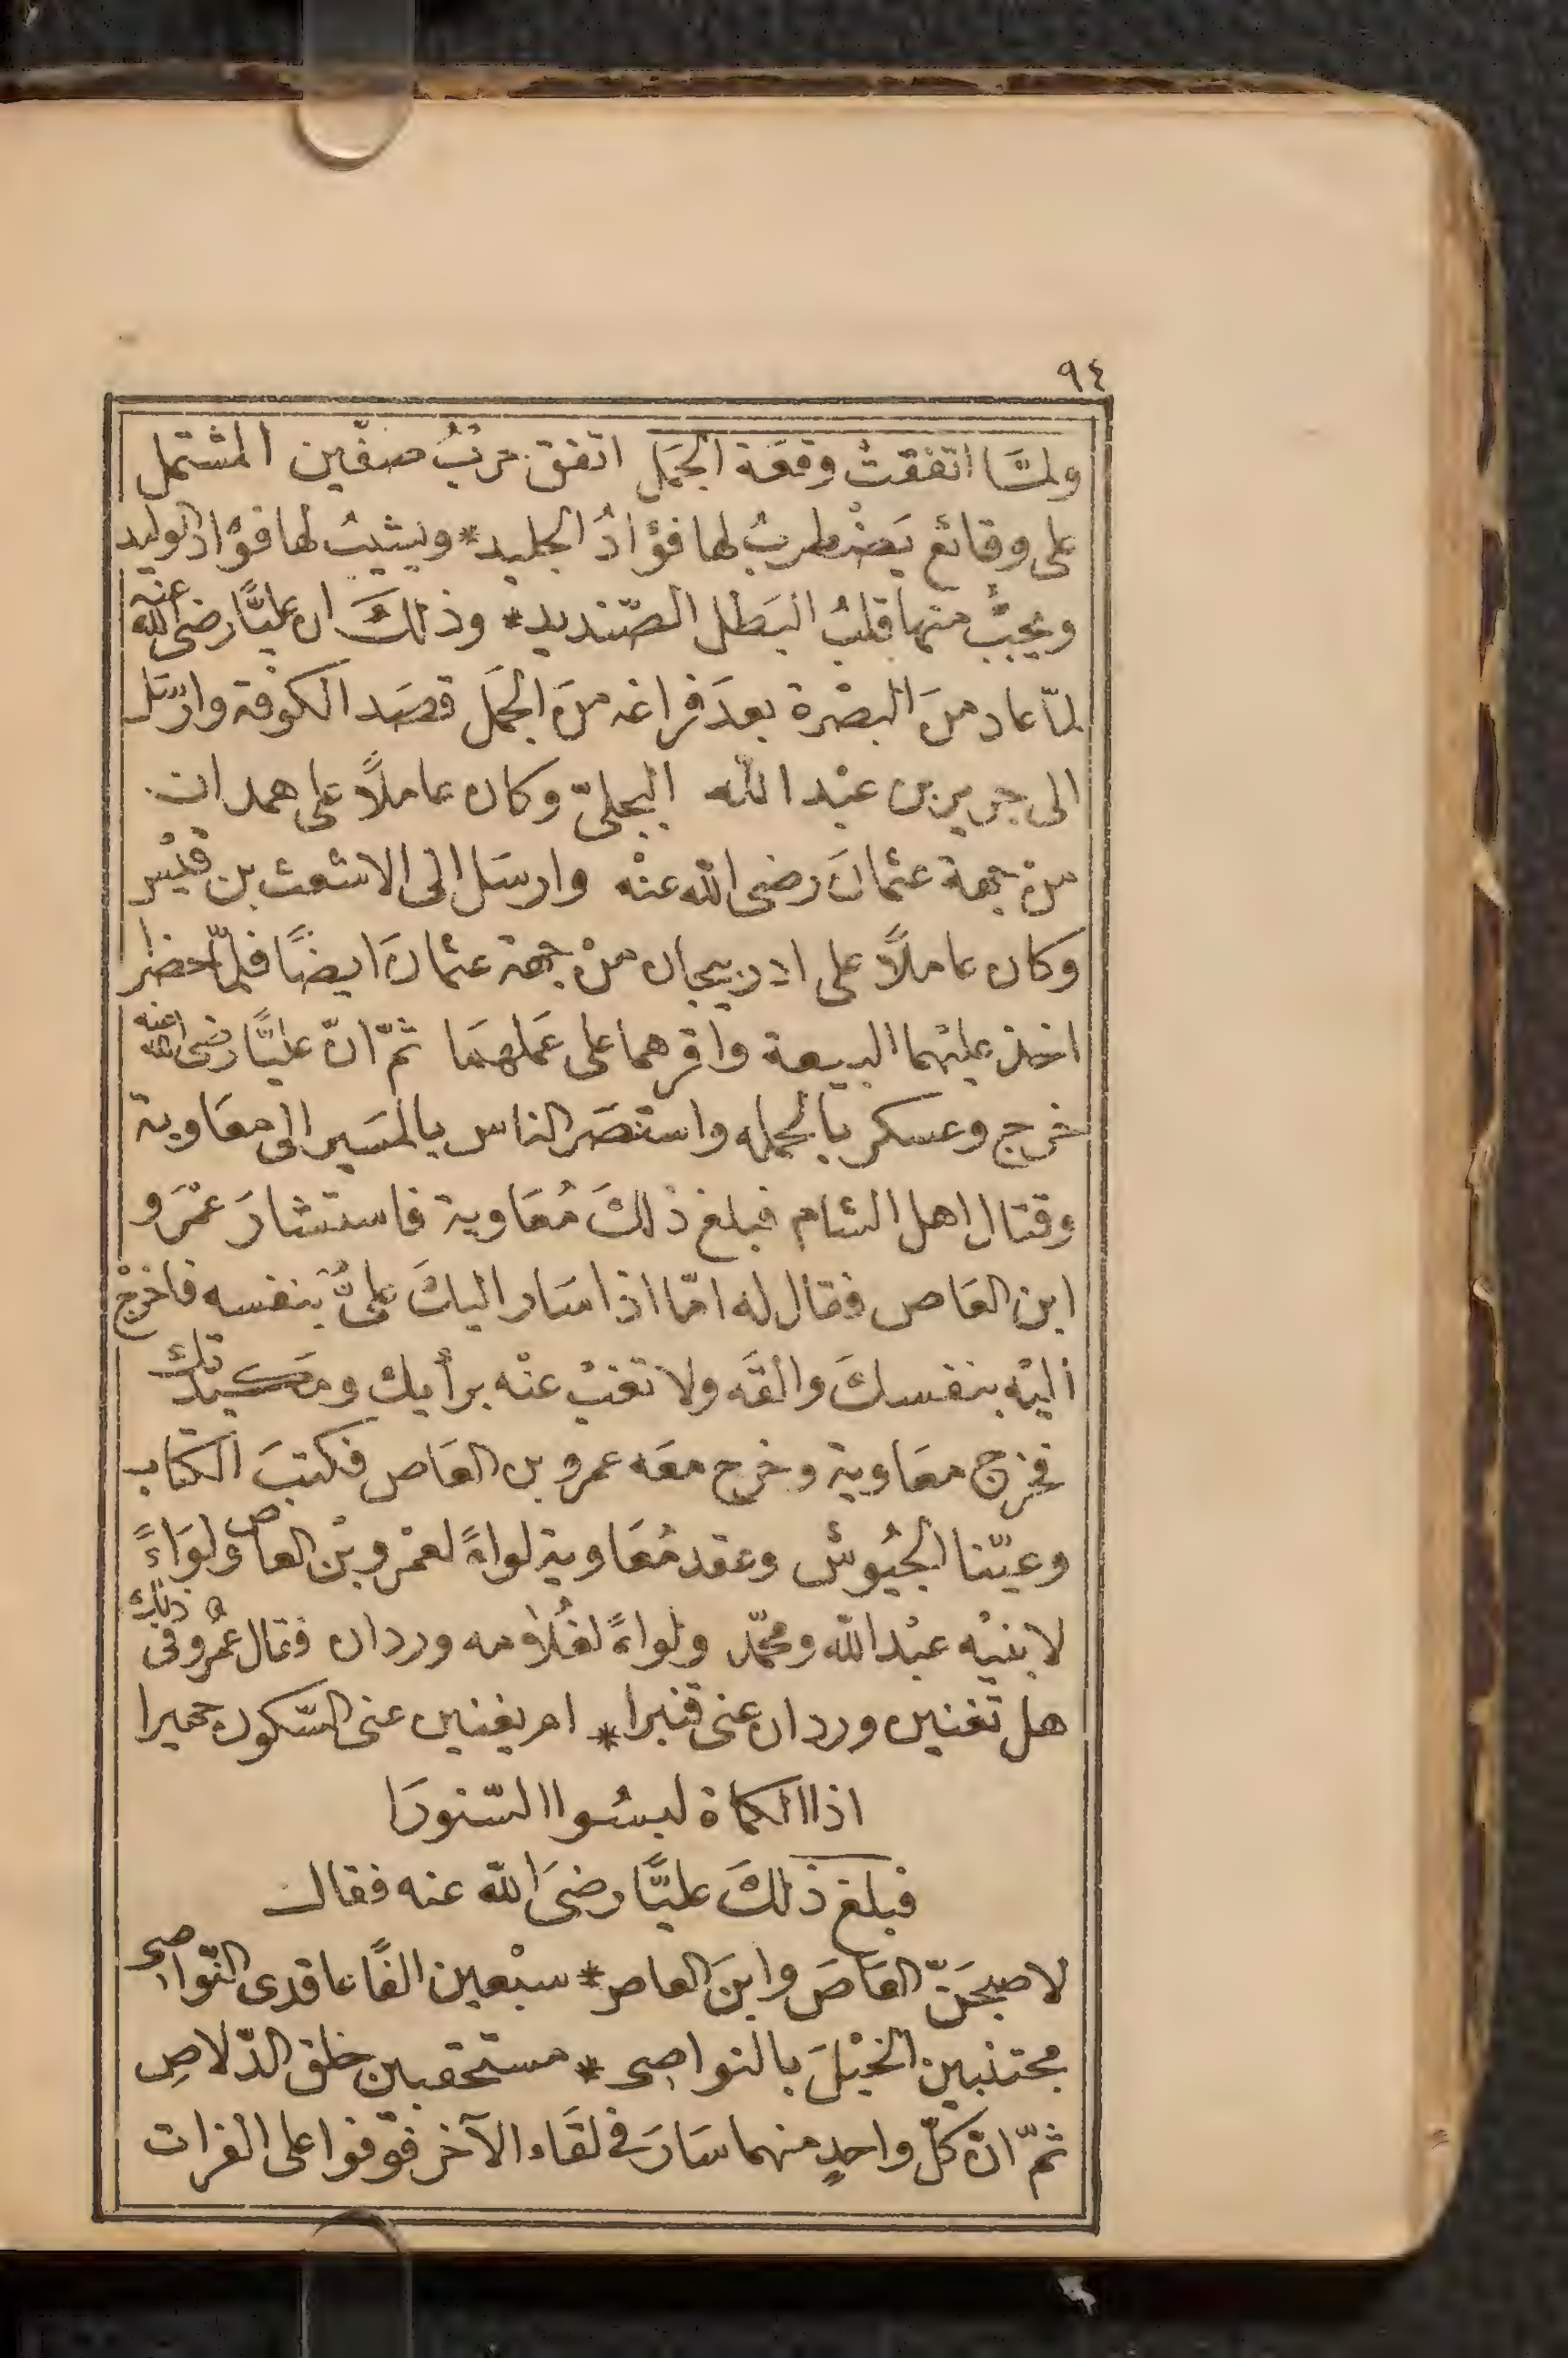 ٩٤
ولمّا اتفقتْ وقعَة الجمَل اتفق حربُ صفّين المشتمل
على وقائع يَضْطربُ لها فؤادُ الجليد * ويشيبُ لها فؤاد الوليد
ويجبُّ منها قلبُ البَطل الصّنديد * وذلكَ ان عليًّا رضى الله عنه
لمّا عاد منَ البصْرة بعدَ فراغه منَ الجمَل قصَد الكوفة وارسَل
الى جرير بن عبْد الله البجلىّ وكان عاملاً على همدان
منْ جهة عثمانَ رضى الله عنْه وارسَل الى الاشعث بن قيْس
وكان عاملاً على ادربيجان منْ جهة عثمانَ ايضًا فلمّا حضرا
اخذ عليْهما البيعة واقرهما على عَملهمَا ثمّ انّ عليًّا رضى الله عنه
خرج وعسكر بالجمله واستنصَر الناس بالمسَير الى معَاوية
وقتال اهل الشام فبلغ ذلكَ مُعَاوية فاستشارَ عمْرَو
ابن العَاص فقال له امّا اذا سَار اليكَ علىٌّ بنفسه فاخرجْ
اليْه بنفسكَ والقَه ولا تغبْ عنْه برأيك ومكيدتك
فخرج معَاوية وخرج معَه عمرو بن العَاص فكتبَ الكتاب
وعيّنا الجيُوش وعقد مُعَاوية لواءً لعمْرو بْن العاص ولوَاءً
لابنيْه عبْد الله ومحمّد ولواءً لغُلامه وردان فقال عمْرو فى ذلك
هل تغنين وردان عنى قنبرا * ام يغنين عنى السّكون حميرا
اذا الكماة لبسُوا السّنورَا
فبلغ ذلكَ عليًّا رضىَ الله عنه فقال
لاصبحَنّ العَاصَ وابنَ العاص * سبْعين الفًا عاقدى النّواصى
مجتنبين الخيْلَ بالنواصى * مستحقبين حلق الدّلاصِ
ثمّ انّ كلّ واحدٍ منهما سَارَ فى لقَاء الآخر فتوقفوا على الفرات